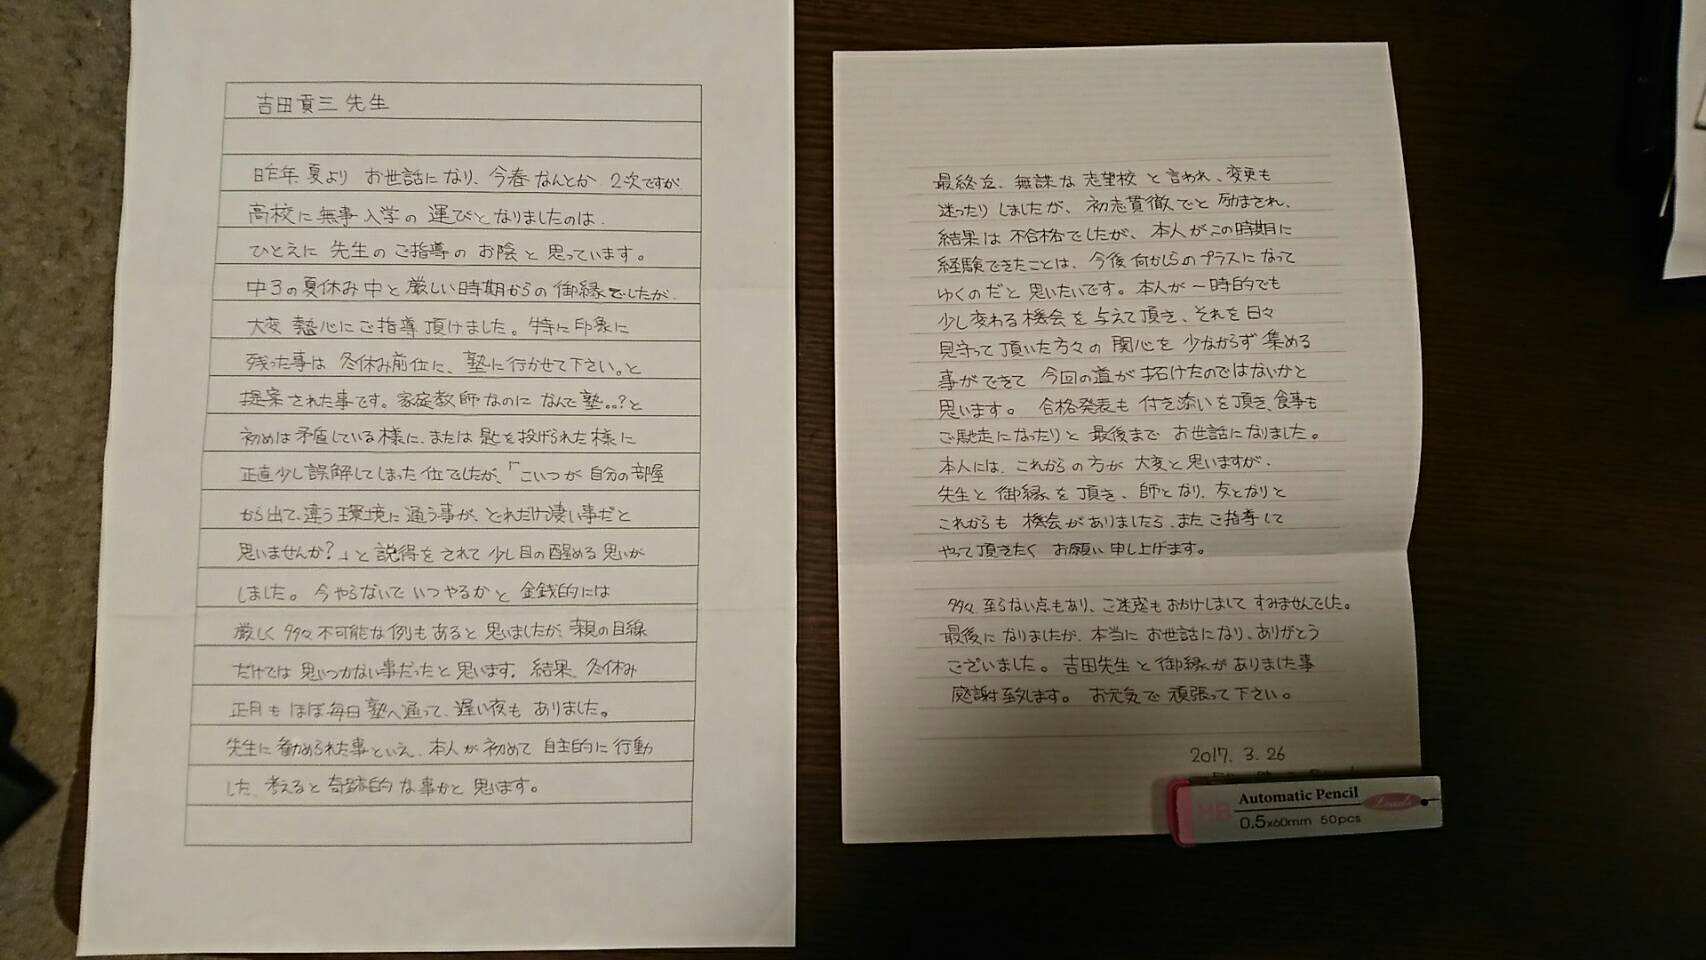 吉田貢三 先生
昨年夏より お世話になり、今春なんとか 2次ですが
高校に無事入学の 運びとなりましたのは、
ひとえに 先生のご指導の お陰と思っています。
中3の夏休み中と厳しい時期からの御縁でしたが、
大変 熱心にご指導頂けました。特に印象に
残った事は 冬休み前位に、塾に行かせて下さい。と
提案された事です。家庭教師なのに なんで塾。。?と
初めは矛盾している様に、または匙を投げられた様に
正直少し誤解してしまった位でしたが、「こいつが自分の部屋
から出て、違う環境に通う事が、どれだけ凄い事だと
思いませんか?」と説得をされて 少し目の醒める思いが
しました。今やらないで いつやるかと 金銭的には
厳しく 多々不可能な例もあると思いましたが、親の目線
だけでは思いつかない事だったと思います。結果、冬休み
正月もほぼ毎日 塾へ通って、遅い夜もありました。
先生に勧められた事といえ、本人が初めて自主的に行動
した、考えると奇跡的な事かと思います。
最終迄、無謀な志望校と言われ、変更も
迷ったりしましたが、初志貫徹でと励まされ、
結果は不合格でしたが、本人がこの時期に
経験できたことは、今後何かしらのプラスになって
ゆくのだと思いたいです。本人が一時的でも
少し変わる機会を与えて頂き、それを日々
見守って頂いた方々の関心を少なからず集める
事ができて 今回の道が拓けたのではないかと
思います。 合格発表も付き添いを頂き、食事も
ご馳走になったりと 最後まで お世話になりました。
本人には、これからの方が 大変と思いますが、
先生と御縁を頂き、師となり、友となりと
これからも 機会がありましたら、またご指導して
やって頂きたく お願い申し上げます。
多々、至らない点もあり、ご迷惑もおかけしまして すみませんでした。
最後になりましたが、本当に お世話になり、ありがとう
ございました。吉田先生と御縁がありました事
感謝致します。 お元気で頑張って下さい。
2017. 3. 26
HB
Automatic Pencil
Leads
0.5x60mm 50pcs